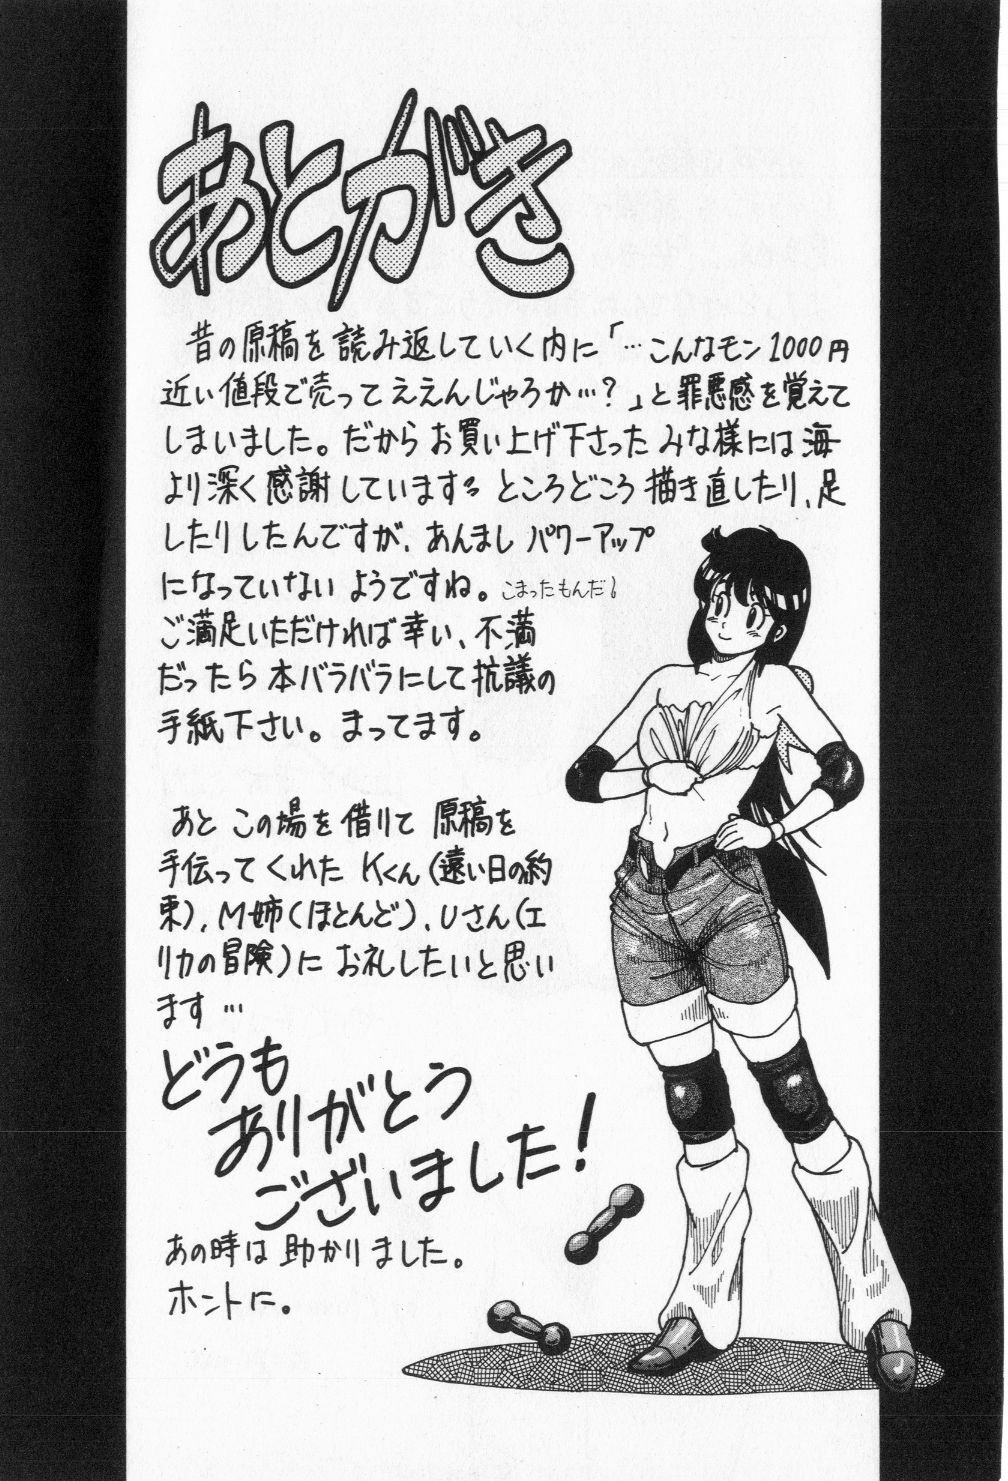 あとがき
昔の原稿を読み返していく内に「…こんなモン1000円
近い値段で売ってええんじゃろか…?」と罪悪感を覚えて
しまいました。だからお買い上げ下さったみな様には海
より深く感謝しています。ところどころ描き直したり、足
したりしたんですが、あんましパワーアップ
になっていないようですね。こまったもんだ!
ご満足いただければ幸い、不満
だったら本バラバラにして抗議の
手紙下さい。まってます。
あとこの場を借りて原稿を
手伝ってくれたKくん(遠い日の約
束)、M姉(ほとんど)、Uさん(エ
リカの冒険)にお礼したいと思い
ます…
どうも
ありがとう
ございました!
あの時は助かりました。
ホントに。